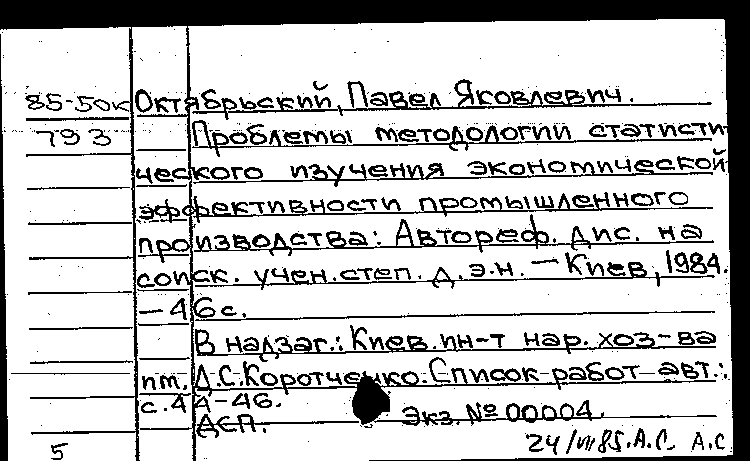 85-50к Октябрьский, Павел Яковлевич.
793 Проблемы методологии статисти-
ческого изучения экономической
эффективности промышленного
производства: Автореф. дис. на
соиск. учен. степ. д.э.н. — Киев, 1984.
— 46 с.
В надзаг.: Киев. ин-т нар. хоз-ва
им. Д.С.Коротченко. Список работ авт.:
с.44-46.
ДСП. Экз. № 00004.
5 24/VII 85. А.С. А.С